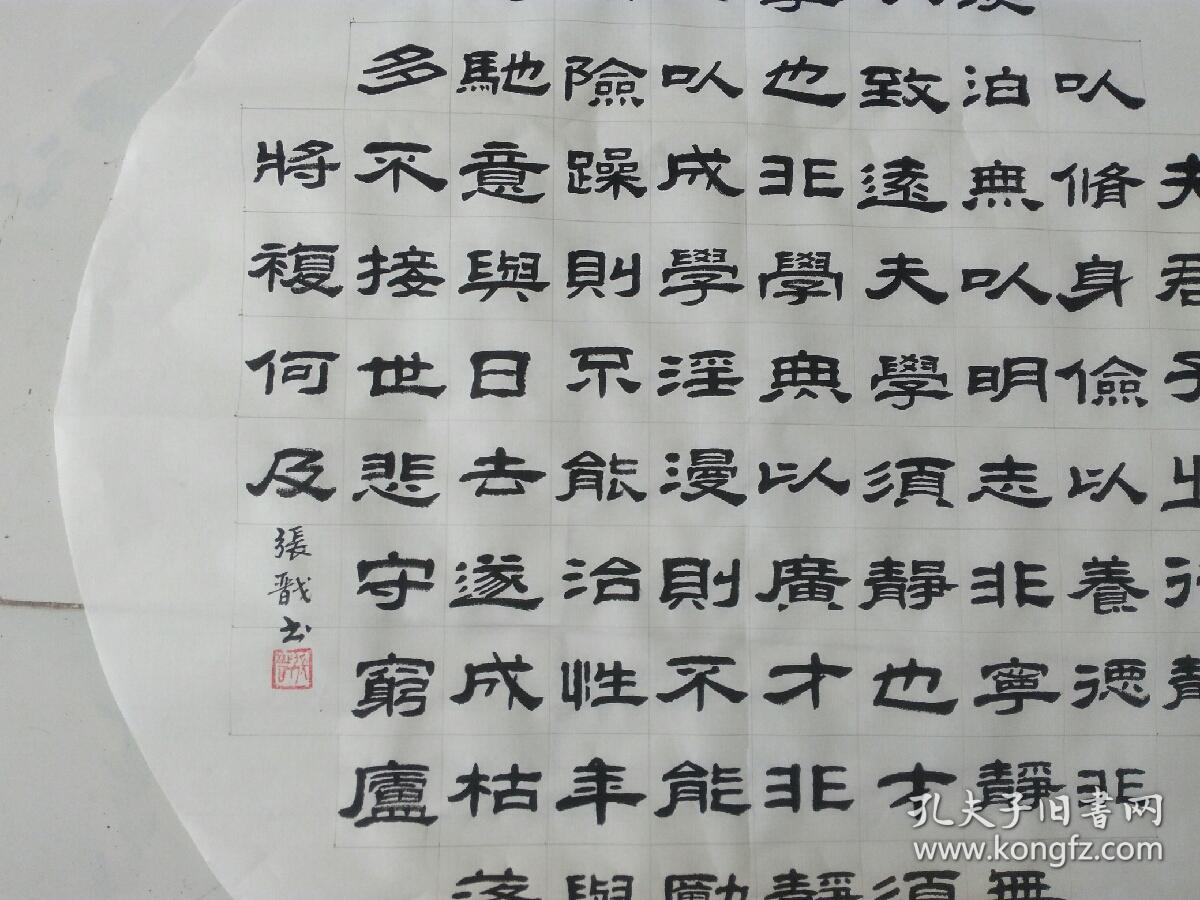 夫君子之行靜
以脩身儉以養德非
泊無以明志非寧靜無
致遠夫學須靜也才須
也非學無以廣才非靜
以成學淫漫則不能勵
險躁則不能治性年與
馳意與日去遂成枯落
多不接世悲守窮廬
將複何及
張戩书
孔夫子旧书网
www.kongfz.com